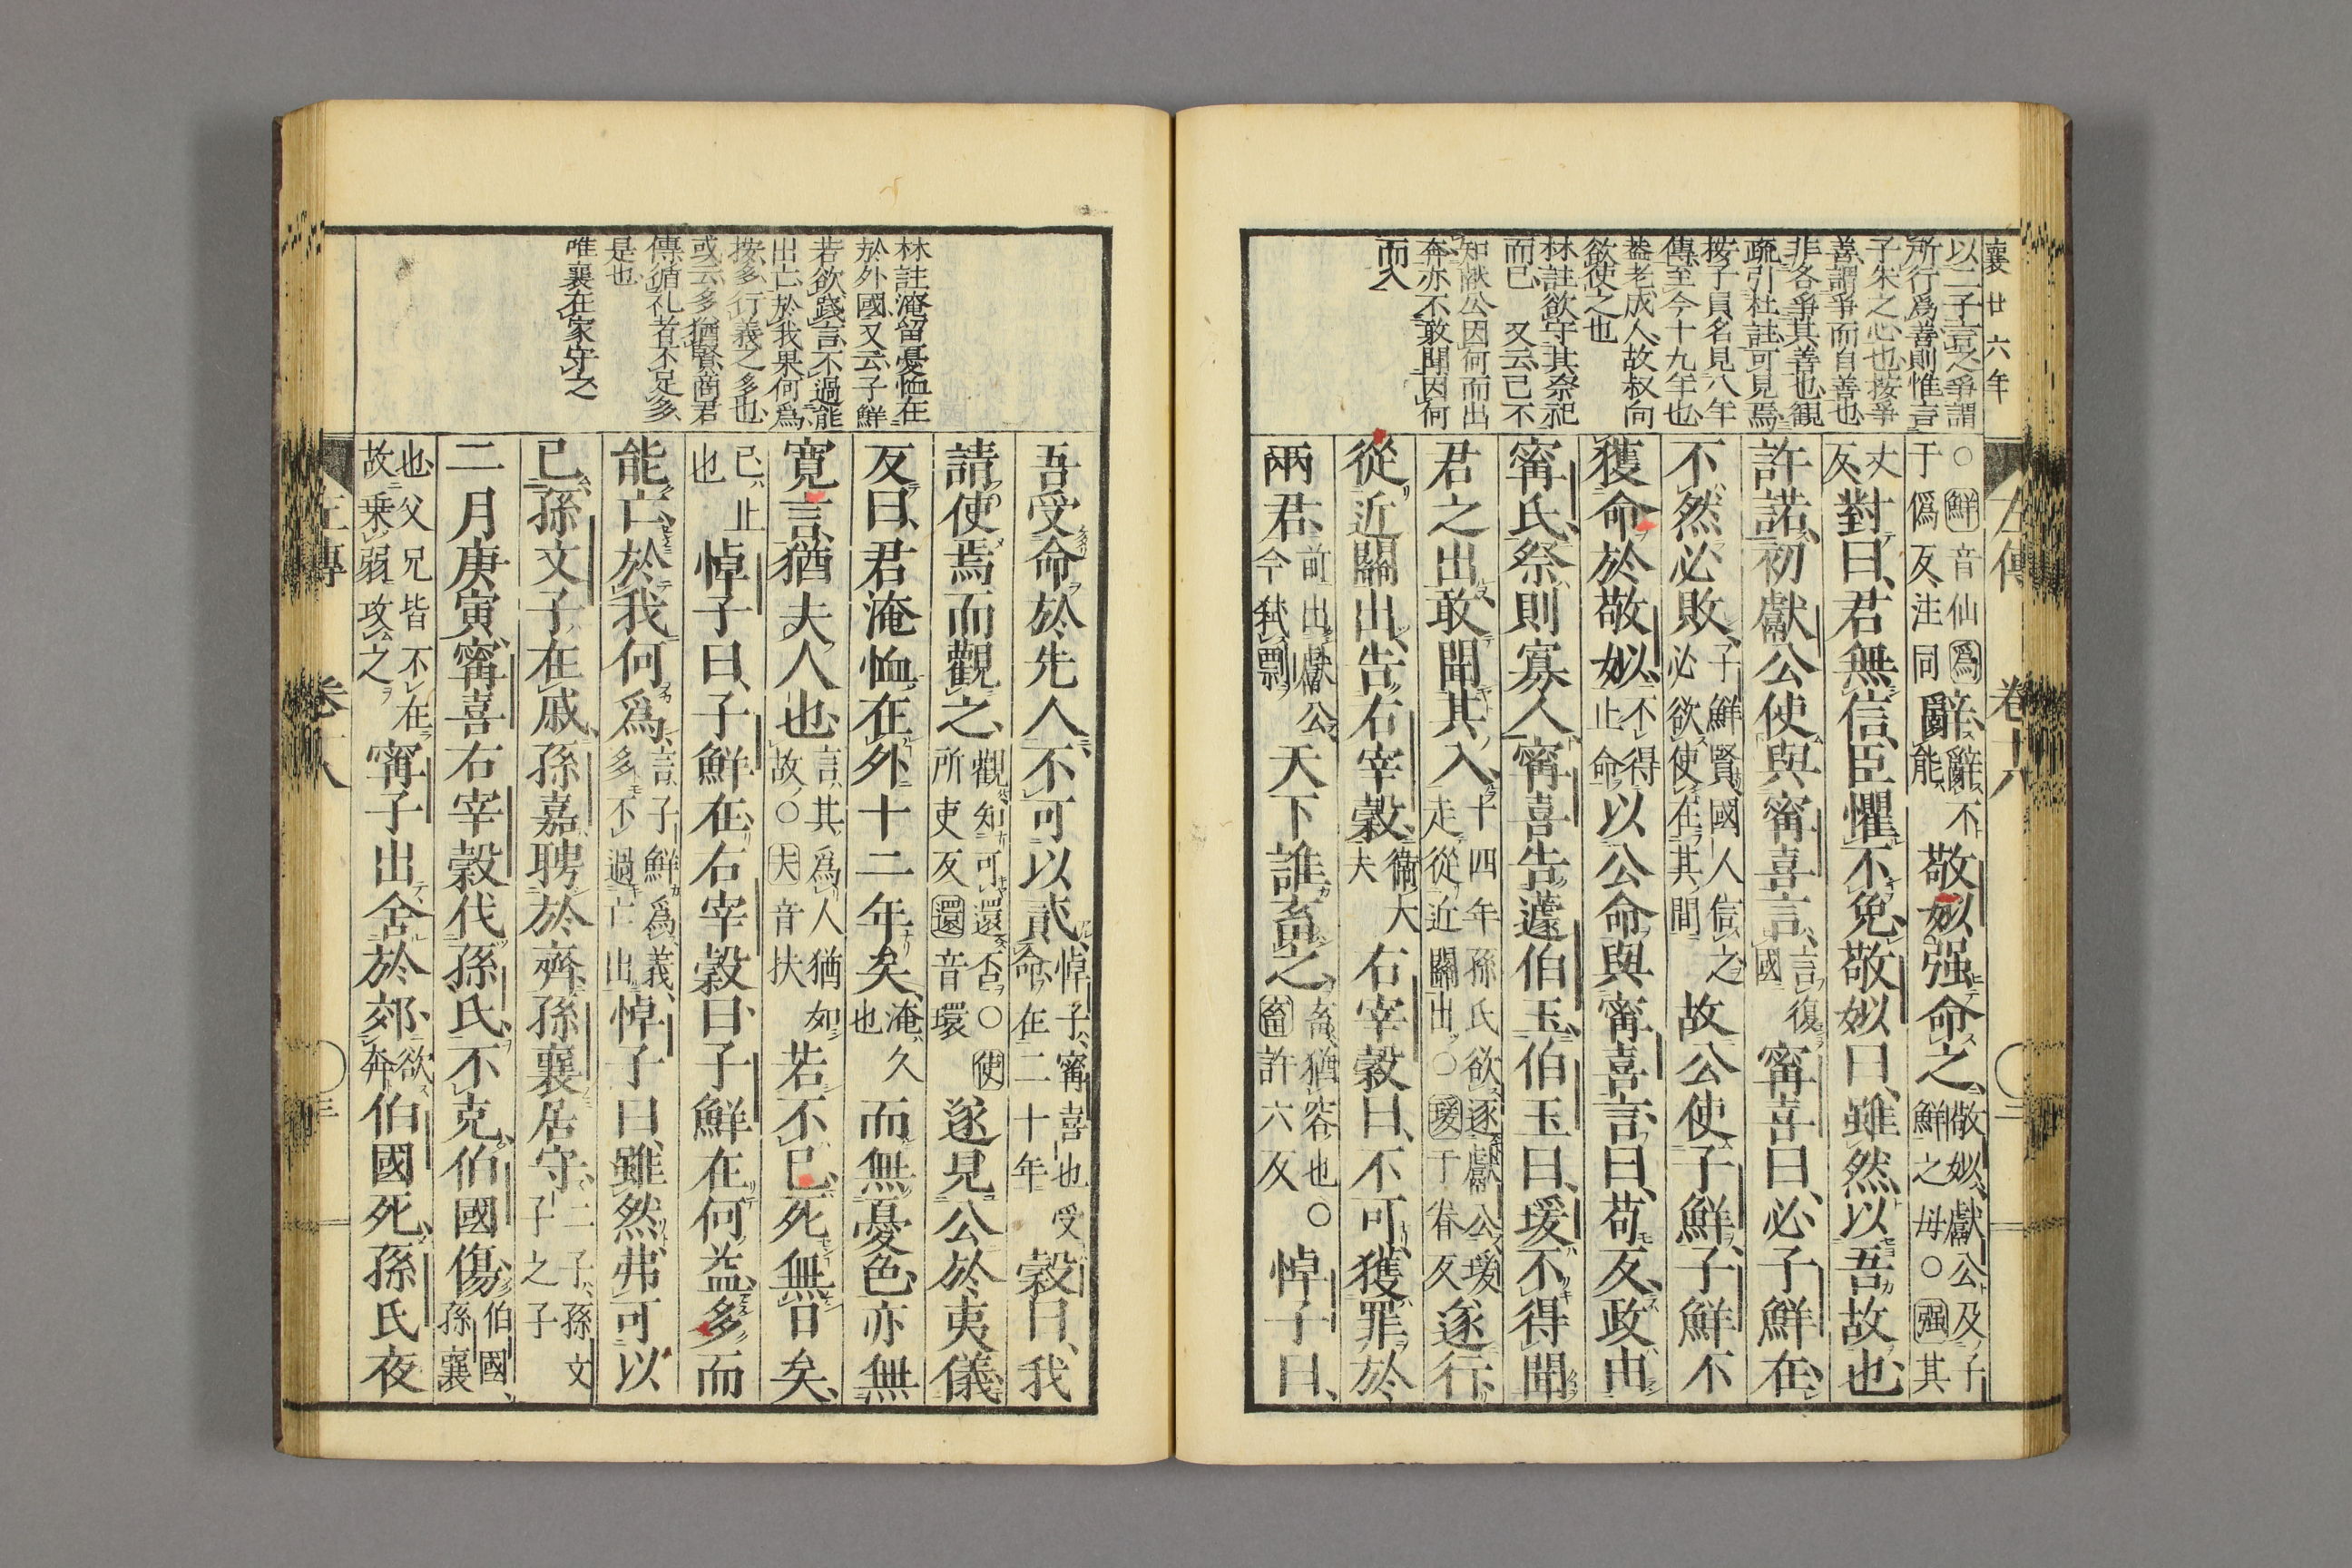 襄廿六年
以二子言之爭謂
所行爲善則惟言
子朱之心也按爭
善謂爭而自善也
非各爭其善也觀
疏引杜註可見焉
按子員名見八年
傳至今十九年也
蓋老成人故叔向
欲使之也
林註欲守其祭祀
而已 又云己不
知獻公因何而出
奔亦不敢聞因何
而入
左傳 卷十八 二
○鮮音仙爲
于僞反注同
辭辭不
能敬姒强命之敬姒獻公及子
鮮之母○强其
丈
反對曰君無信臣懼不免敬姒曰雖然以吾故也
許諾初獻公使與甯喜言言復
國甯喜曰必子鮮在
不然必敗子鮮賢國人信之
必欲使在其間故公使子鮮子鮮不
獲命於敬姒不得
止命以公命與甯喜言曰苟反政由
甯氏祭則寡人甯喜告蘧伯玉伯玉曰瑗不得聞
君之出敢聞其入十四年孫氏欲逐獻公瑗
走從近關出○瑗于眷反遂行
從近關出告右宰穀衞大
夫右宰穀曰不可獲罪於
兩君前出獻公
今弒剽天下誰畜之畜猶容也○
畜許六反悼子曰
林註淹留憂恤在
於外國又云子鮮
若欲踐言不過能
出亡於我果何爲
按多行義之多也
或云多猶賢商君
傳循礼者不足多
是也
唯襄在家守之
吾受命於先人不可以貳悼子甯喜也受
命在二十年穀曰我
請使焉而觀之觀知可還否○使
所吏反還音環遂見公於夷儀
反曰君淹恤在外十二年矣淹久
也而無憂色亦無
寬言猶夫人也言其爲人猶如
故○夫音扶若不已死無日矣
已止
也悼子曰子鮮在右宰穀曰子鮮在何益多而
能亡於我何爲言子鮮爲義
多不過亡出悼子曰雖然弗可以
已孫文子在戚孫嘉聘於齊孫襄居守二子孫文
子之子
二月庚寅甯喜右宰穀代孫氏不克伯國傷伯國
孫襄
也父兄皆不在
故乗弱攻之甯子出舍於郊欲
奔伯國死孫氏夜
左傳 卷十八 三